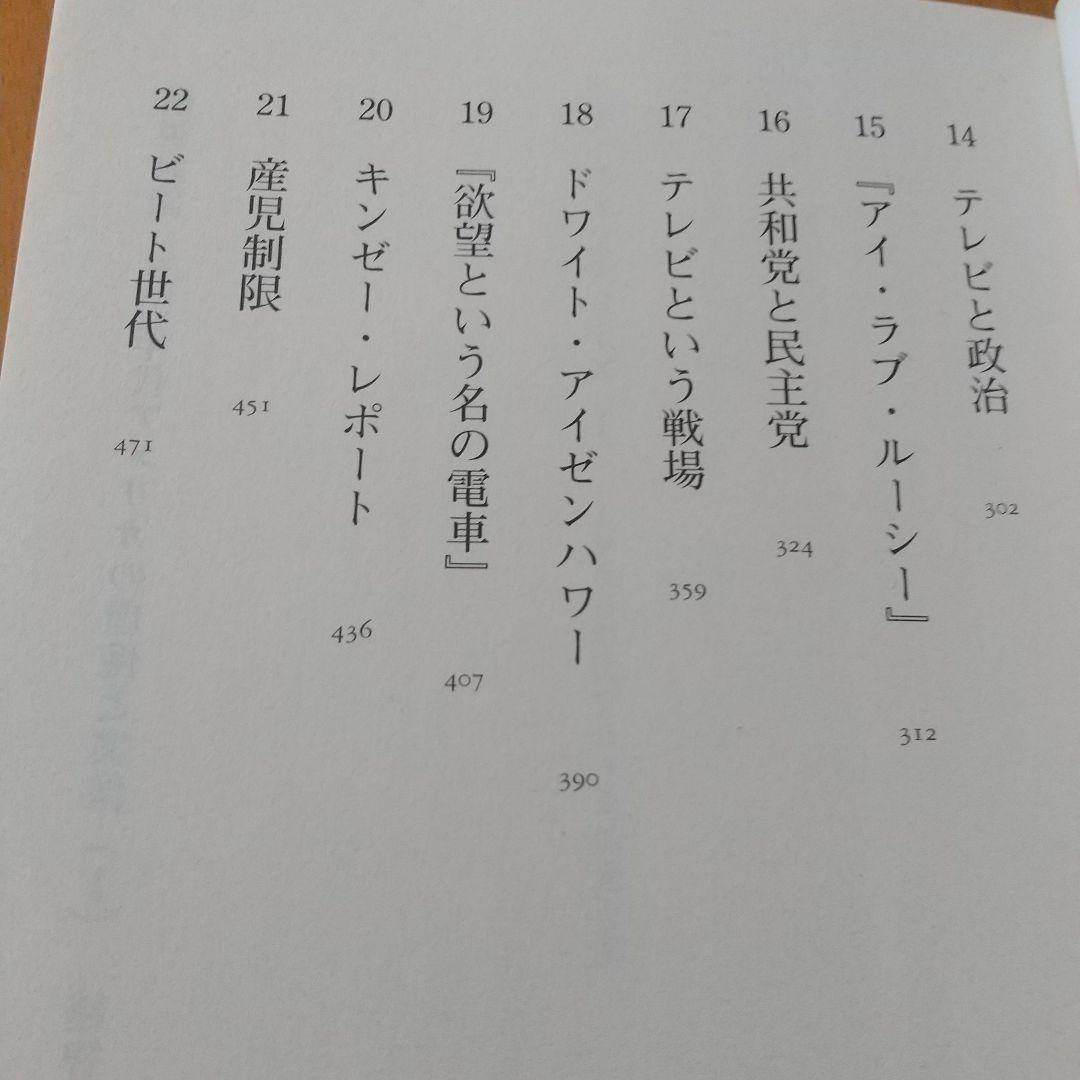 14 テレビと政治 302
15 『アイ・ラブ・ルーシー』 312
16 共和党と民主党 324
17 テレビという戦場 359
18 ドワイト・アイゼンハワー 390
19 『欲望という名の電車』 407
20 キンゼー・レポート 436
21 産児制限 451
22 ビート世代 471